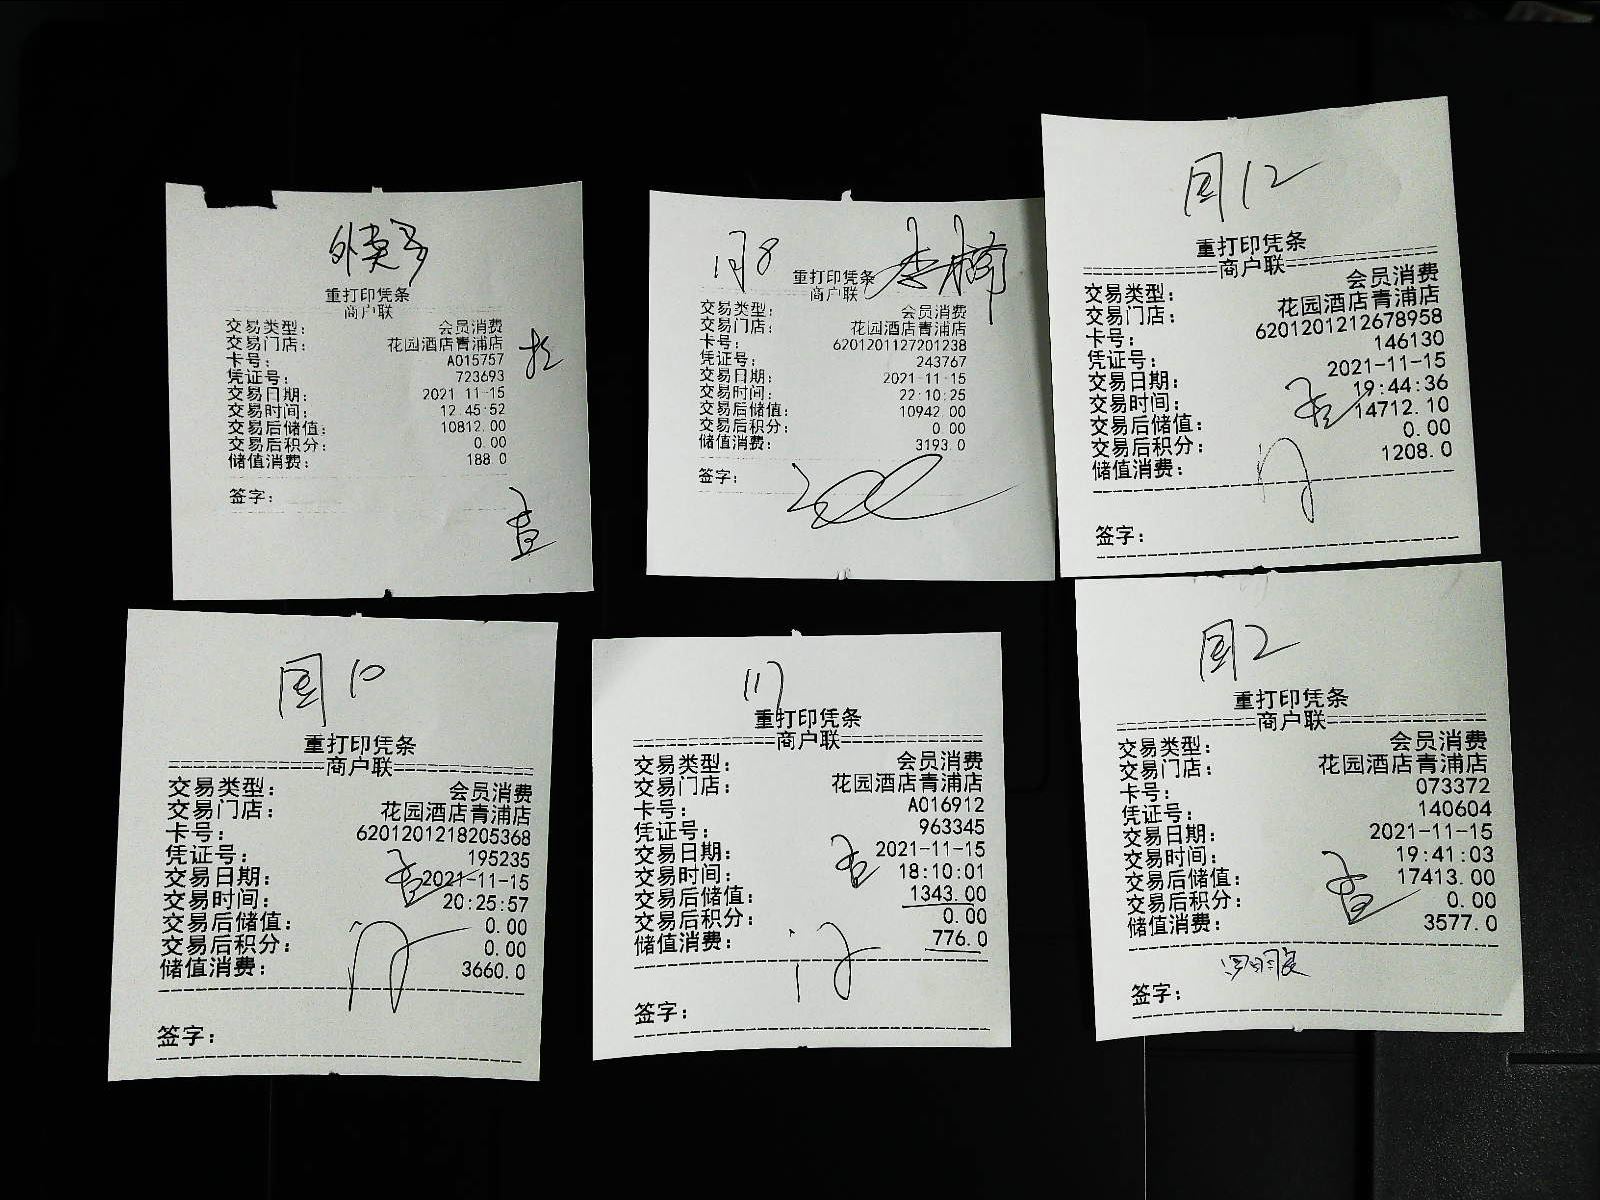 外卖
重打印凭条
商户联
交易类型： 会员消费
交易门店： 花园酒店青浦店
卡号： A015757
凭证号： 723693
交易日期： 2021-11-15
交易时间： 12:45:52
交易后储值： 10812.00
交易后积分： 0.00
储值消费： 188.0
签字：
8
李楠
重打印凭条
商户联
交易类型： 会员消费
交易门店： 花园酒店青浦店
卡号： 6201201127201238
凭证号： 243767
交易日期： 2021-11-15
交易时间： 22:10:25
交易后储值： 10942.00
交易后积分： 0.00
储值消费： 3193.0
签字：
12
重打印凭条
商户联
交易类型： 会员消费
交易门店： 花园酒店青浦店
卡号： 6201201212678958
凭证号： 146130
交易日期： 2021-11-15
交易时间： 19:44:36
交易后储值： 14712.10
交易后积分： 0.00
储值消费： 1208.0
签字：
10
重打印凭条
商户联
交易类型： 会员消费
交易门店： 花园酒店青浦店
卡号： 6201201218205368
凭证号： 195235
交易日期： 2021-11-15
交易时间： 20:25:57
交易后储值： 0.00
交易后积分： 0.00
储值消费： 3660.0
签字：
重打印凭条
商户联
交易类型： 会员消费
交易门店： 花园酒店青浦店
卡号： A016912
凭证号： 963345
交易日期： 2021-11-15
交易时间： 18:10:01
交易后储值： 1343.00
交易后积分： 0.00
储值消费： 776.0
签字：
2
重打印凭条
商户联
交易类型： 会员消费
交易门店： 花园酒店青浦店
卡号： 073372
凭证号： 140604
交易日期： 2021-11-15
交易时间： 19:41:03
交易后储值： 17413.00
交易后积分： 0.00
储值消费： 3577.0
签字：